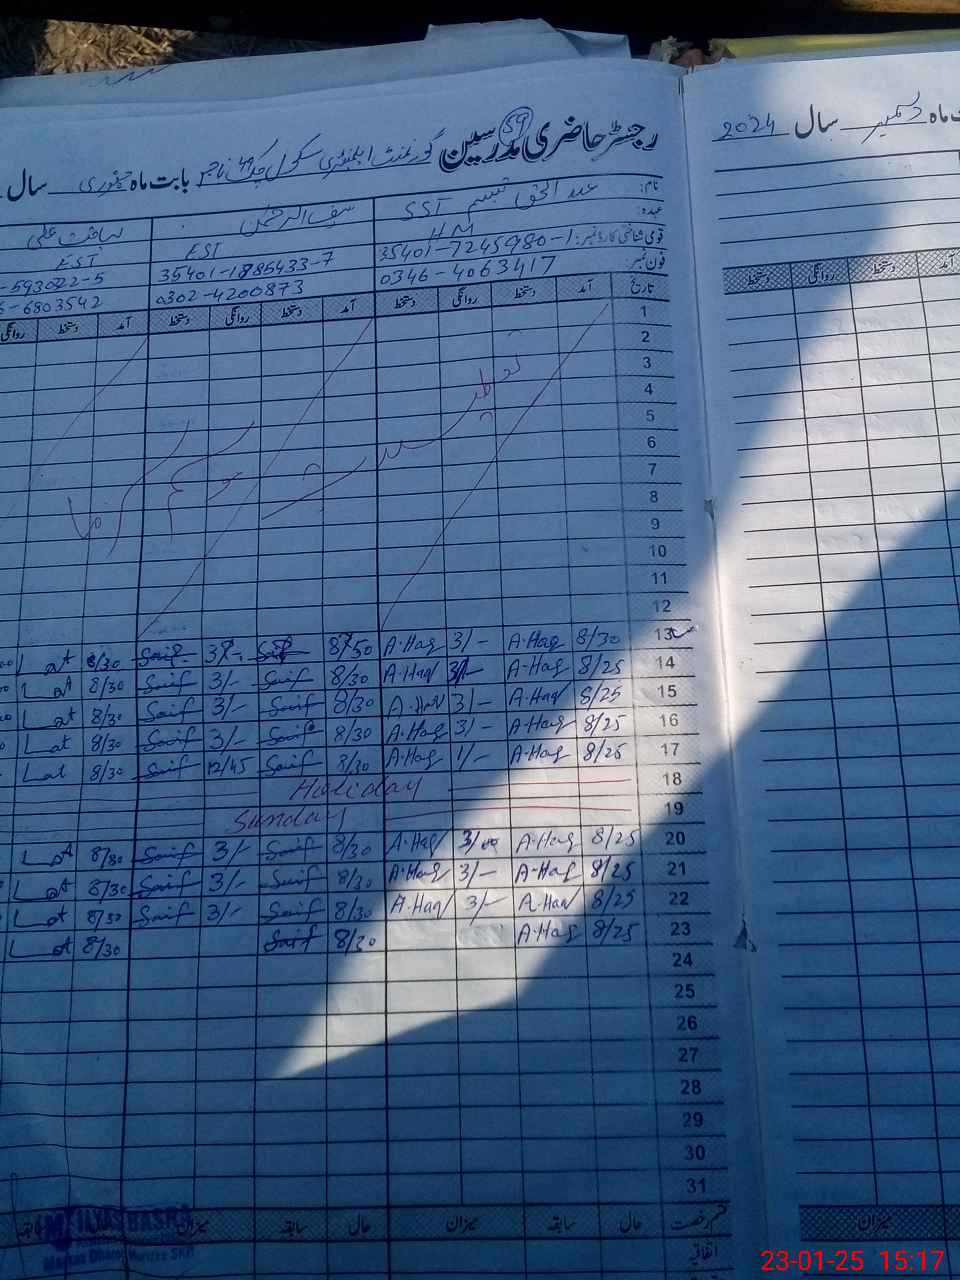 رجسٹر حاضری مدرسین 59 گورنمنٹ ایلیمنٹری سکول چک بابت ماہ جنوری سال
ماہ دسمبر سال 2024
نام: عبدالحق تبسم سیف الرحمن لیاقت علی
عہدہ: SST HM EST EST
قومی شناختی کارڈ نمبر: 35401-7245980-1 35401-1885433-7 -593022-5
فون نمبر: 0346-4063417 0302-4200873 -6803542
تاریخ آمد دستخط روانگی دستخط آمد دستخط روانگی دستخط آمد دستخط روانگی
آمد دستخط روانگی دستخط
1
2
3
4
5
6
7
8
9
10
11
12
موسم سرما
13 8/30 A.Haq 3/- A.Haq 8/50 Saif Saif 8/30 Lat
14 8/25 A.Haq A.Haq 8/30 Saif 3/- Saif 8/30 Lat
15 8/25 A.Haq 3/- A.Haq 8/30 Saif 3/- Saif 8/30 Lat
16 8/25 A.Haq 3/- A.Haq 8/30 Saif 3/- Saif 8/30 Lat
17 8/25 A.Haq 1/- A.Haq 8/30 Saif 12/45 Saif 8/30 Lat
18 Holiday
19 Sunday
20 8/25 A.Haq 3/00 A.Haq 8/30 Saif 3/- Saif 8/30 Lat
21 8/25 A.Haq 3/- A.Haq 8/30 Saif 3/- Saif 8/30 Lat
22 8/25 A.Haq 3/- A.Haq 8/30 Saif 3/- Saif 8/30 Lat
23 8/25 A.Haq 8/30 Saif 8/30 Lat
24
25
26
27
28
29
30
31
قسم رخصت حال سابقہ میزان حال سابقہ میزان
میزان
اتفاقیہ
ILYAS BASRA
23-01-25 15:17